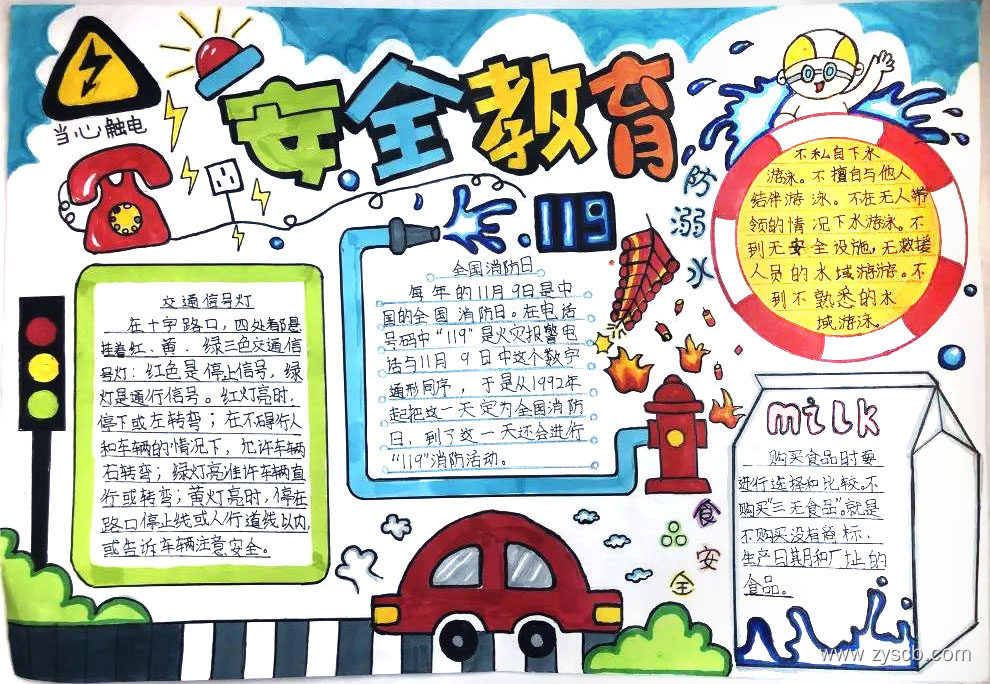 安全教育
当心触电
119
防溺水
不私自下水
游泳。不擅自与他人
结伴游泳。不在无人带
领的情况下水游泳。不
到无安全设施,无救援
人员的水域游游。不
到不熟悉的水
域游泳。
交通信号灯
在十字路口,四处都悬
挂着红、黄、绿三色交通信
号灯:红色是停止信号,绿
灯是通行信号。红灯亮时,
停下或左转弯;在不碍行人
和车辆的情况下,允许车辆
右转弯;绿灯亮准许车辆直
行或转弯;黄灯亮时,停在
路口停止线或人行道线以内,
或告诉车辆注意安全。
全国消防日
每年的11月9日是中
国的全国消防日。在电话
号码中“119”是火灾报警电
话与11月9日中这个数字
通形同序,于是从1992年
起把这一天定为全国消防
日,到了这一天还会进行
“119”消防活动。
食品安全
milk
购买食品时要
进行选择和比较。不
购买“三无食品”。就是
不购买没有商标、
生产日期和厂址的
食品。
www.zyscb.com